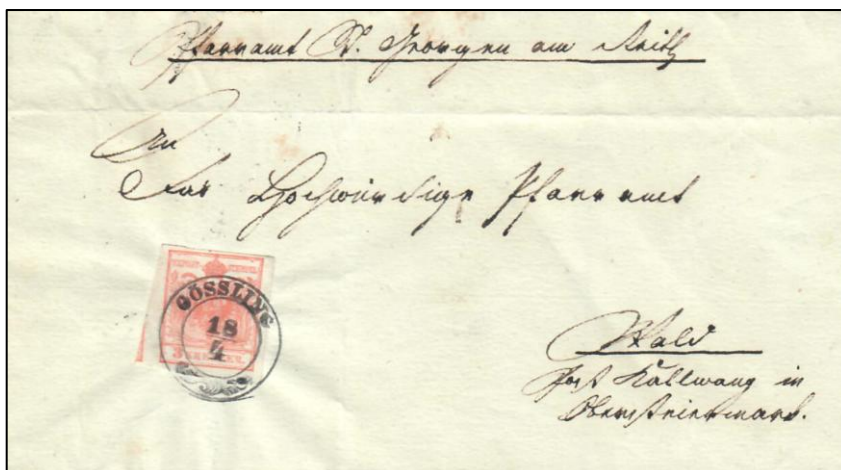 Pfarramt St. Georgen am Reith
An
Das Hochwürdige Pfarramt
GÖSSLING
18
4
3 KREUZER.
Wald
Post Kallwang in
Obersteiermark.